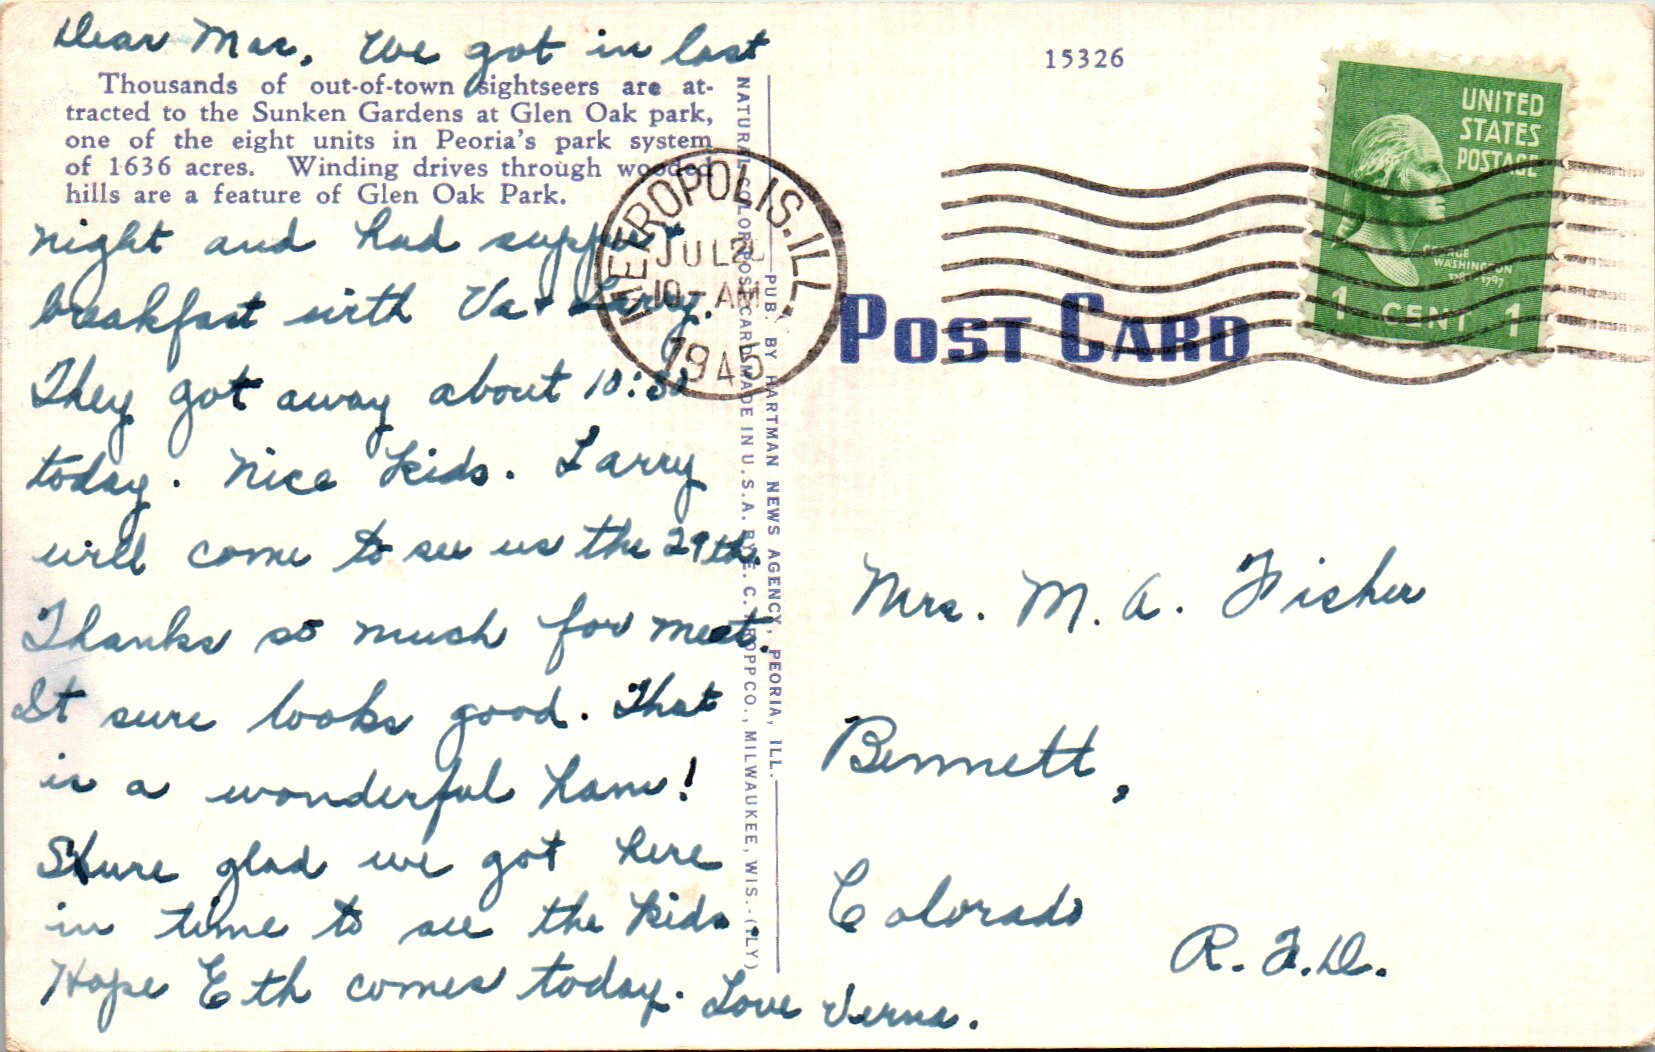 Dear Mac, We got in last
Thousands of out-of-town sightseers are at-
tracted to the Sunken Gardens at Glen Oak park,
one of the eight units in Peoria's park system
of 1636 acres. Winding drives through wooded
hills are a feature of Glen Oak Park.
night and had supper +
breakfast with Va + Larry.
They got away about 10:30
today. Nice kids. Larry
will come to see us the 29th.
Thanks so much for meat.
It sure looks good. That
is a wonderful ham!
Sure glad we got here
in time to see the kids.
Hope Eth comes today. Love Verna.
NATURAL COLOR POST CARD MADE IN U.S.A. BY E. C. KROPP CO., MILWAUKEE, WIS.
PUB. BY HARTMAN NEWS AGENCY, PEORIA, ILL.
15326
METROPOLIS. ILL.
JUL 2
10-AM
1945
UNITED
STATES
POSTAGE
GEORGE
WASHINGTON
1 CENT 1
POST CARD
Mrs. M. A. Fisher
Bennett,
Colorado
R.F.D.